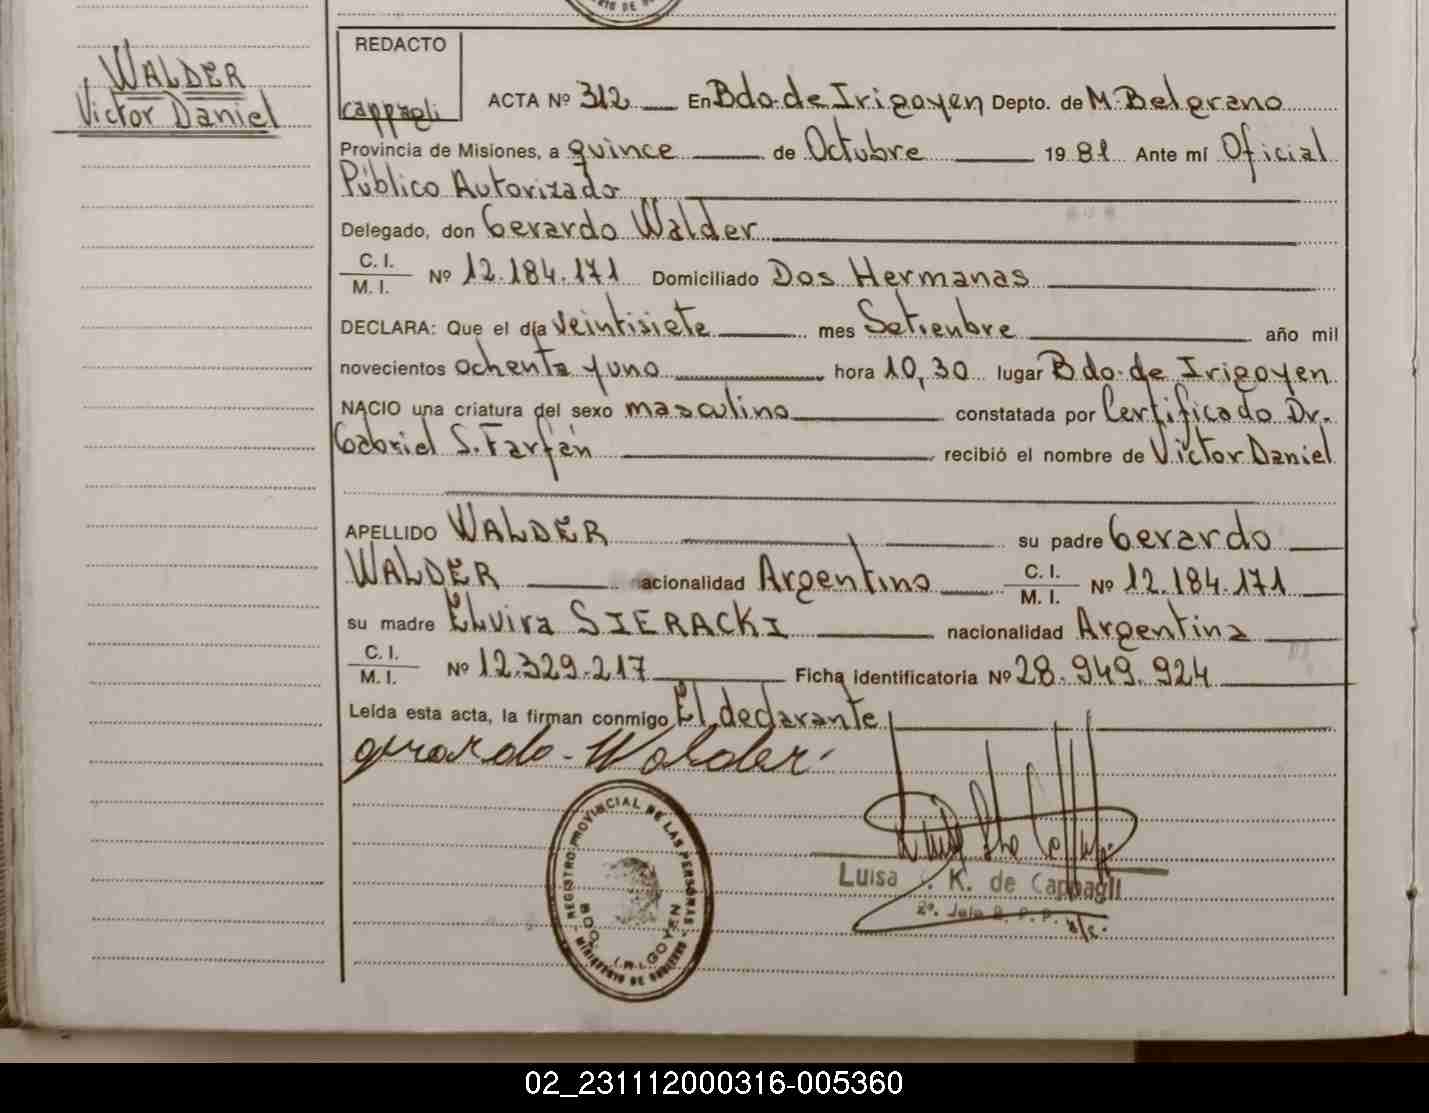 WALDER
Victor Daniel
REDACTO
cappagli
ACTA Nº 312 En Bdo. de Irigoyen Depto. de M. Belgrano
Provincia de Misiones, a quince de Octubre 1981 Ante mí Oficial
Público Autorizado
Delegado, don Gerardo Walder
C. I.
M. I. Nº 12.184.171 Domiciliado Dos Hermanas
DECLARA: Que el día veintisiete mes Setienbre año mil
novecientos ochenta y uno hora 10,30 lugar Bdo. de Irigoyen
NACIO una criatura del sexo masculino constatada por Certificado Dr.
Gabriel S. Farfán recibió el nombre de Victor Daniel
APELLIDO WALDER su padre Gerardo
WALDER nacionalidad Argentino C. I. M. I. Nº 12.184.171
su madre Elvira SIERACKI nacionalidad Argentina
C. I.
M. I. Nº 12.329.217 Ficha identificatoria Nº 28.949.924
Leída esta acta, la firman conmigo El declarante
gerardo - Walder
REGISTRO PROVINCIAL DE LAS PERSONAS
BDO. IRIGOYEN
MINISTERIO DE GOBIERNO
Luisa K. de Cappagli
2º. Jefe R. P. P.
02_231112000316-005360